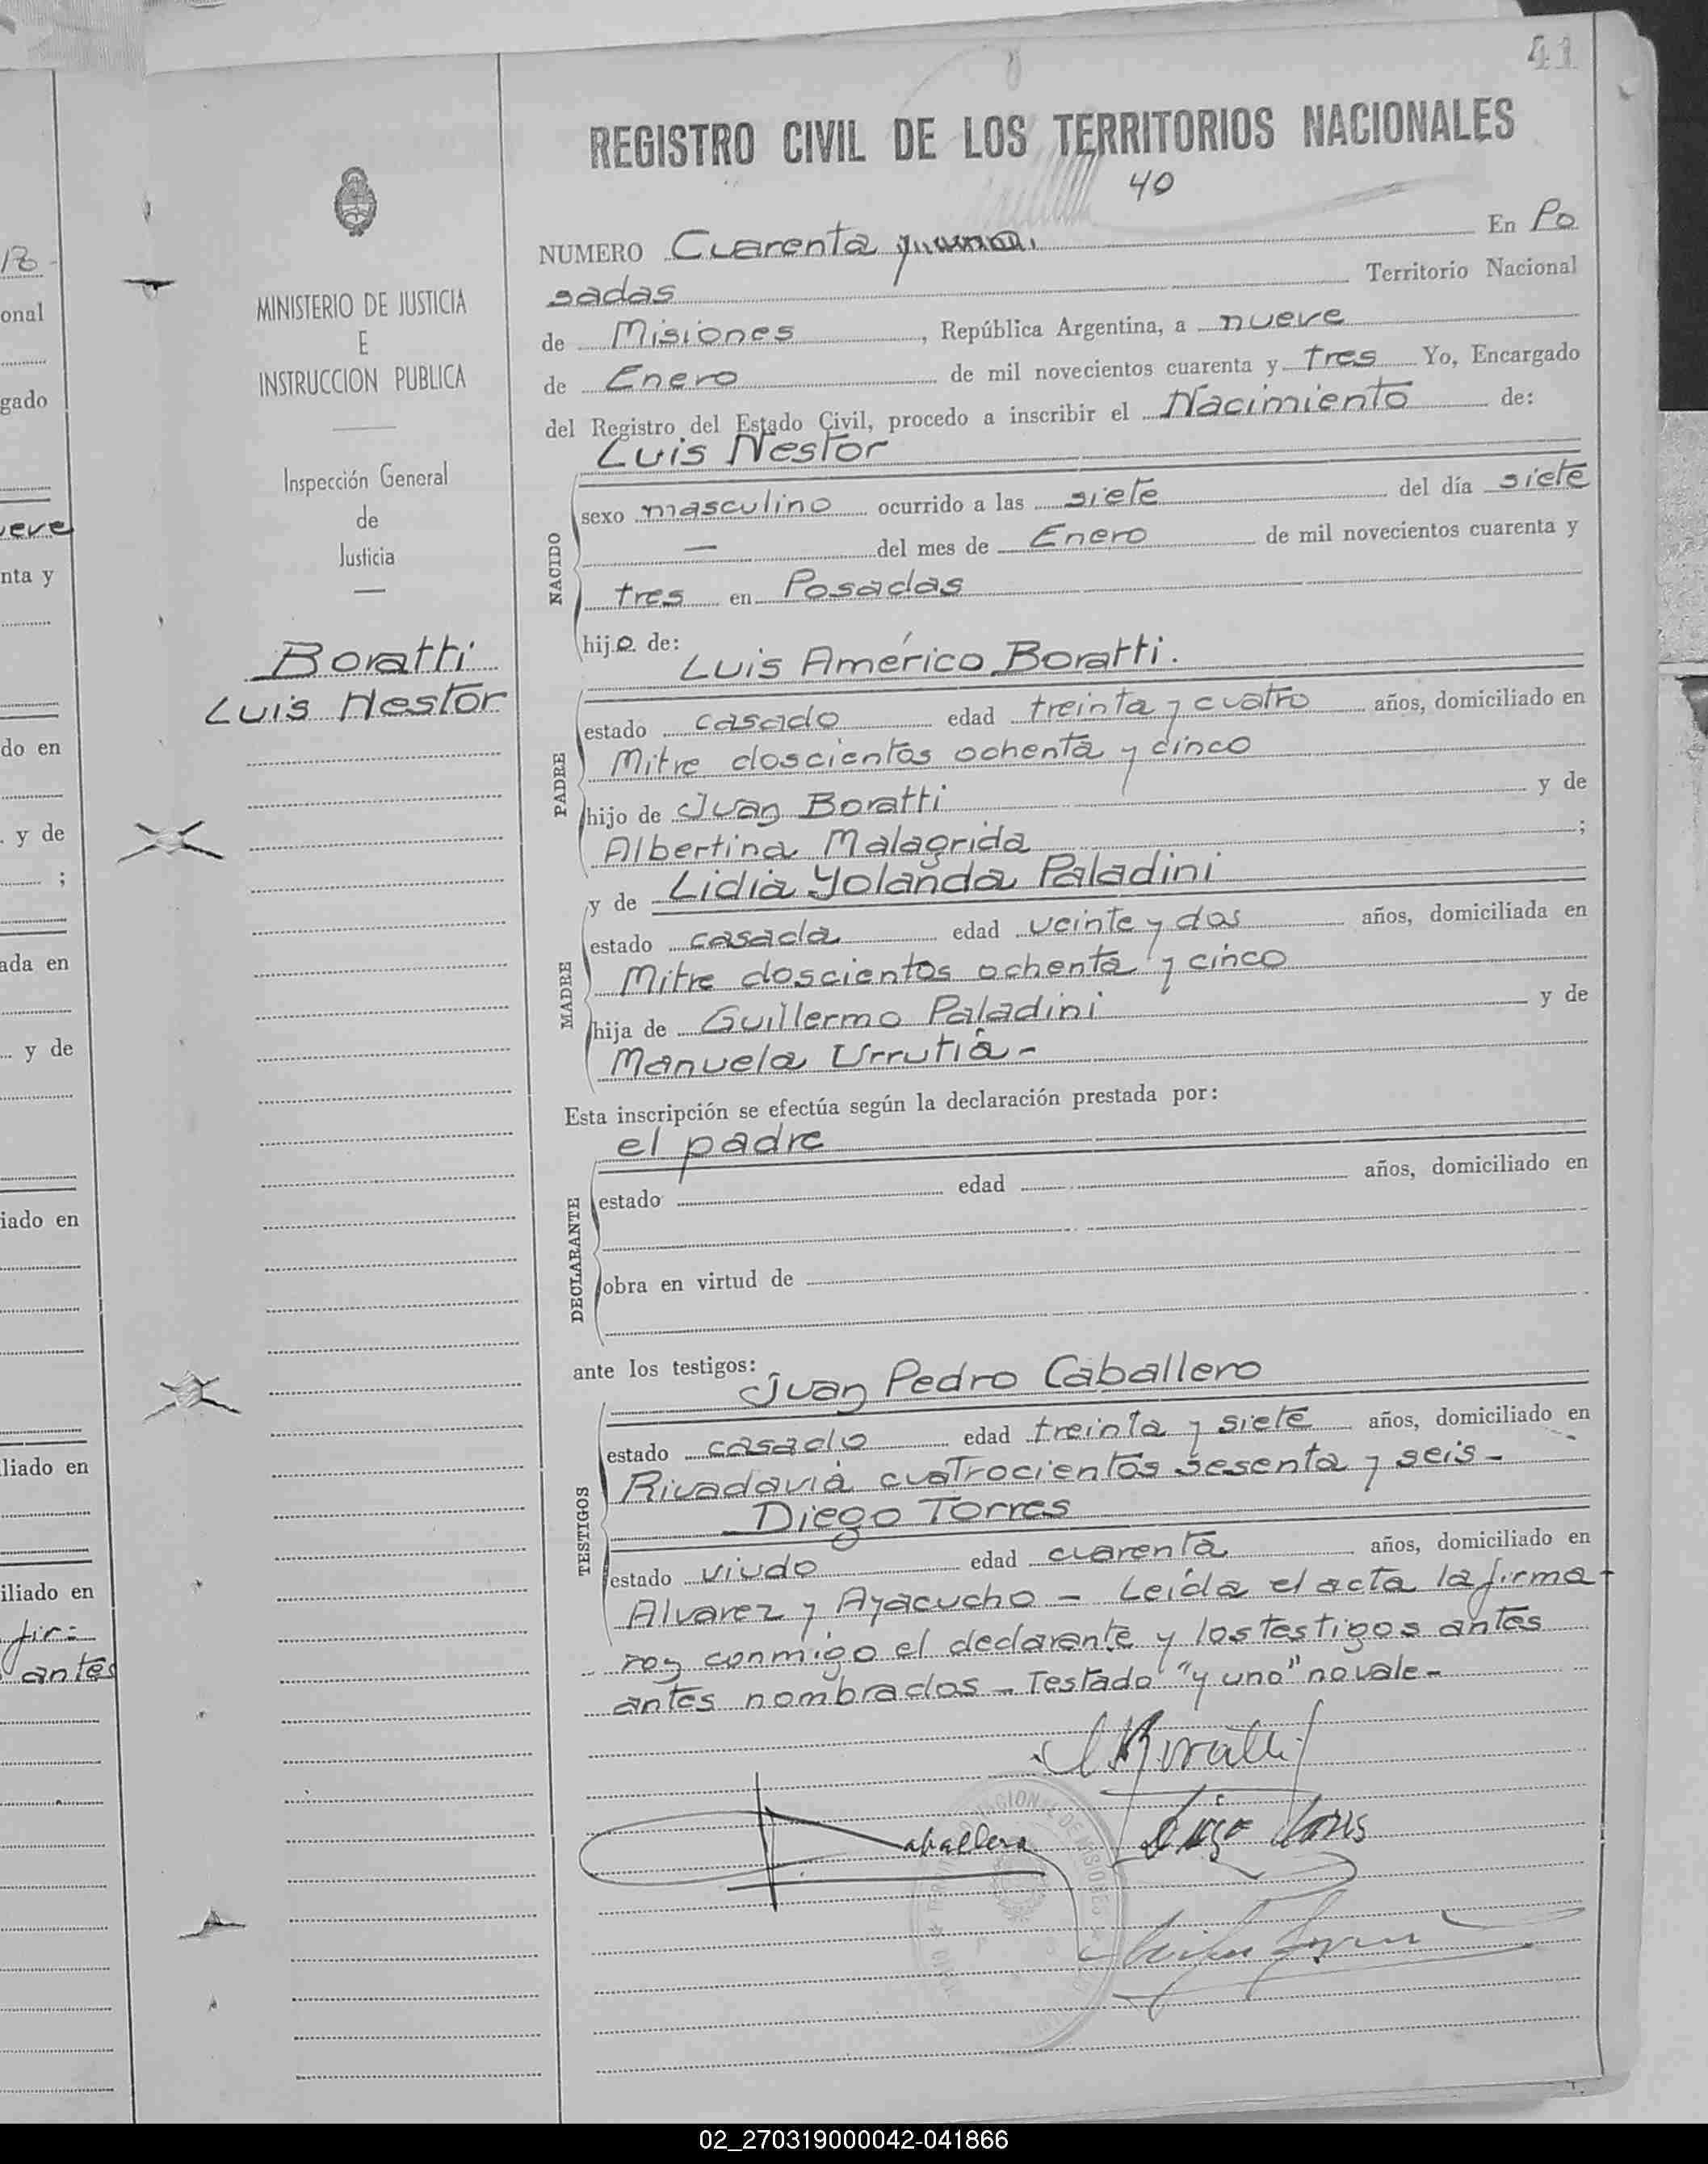 41
REGISTRO CIVIL DE LOS TERRITORIOS NACIONALES
40
NUMERO Cuarenta y uno. En Po
sadas Territorio Nacional
de Misiones, República Argentina, a nueve
de Enero de mil novecientos cuarenta y tres Yo, Encargado
del Registro del Estado Civil, procedo a inscribir el Nacimiento de:
Luis Nestor
NACIDO
sexo masculino ocurrido a las siete del día siete
— del mes de Enero de mil novecientos cuarenta y
tres en Posadas
hijo de:
Luis Américo Boratti.
PADRE
estado casado edad treinta y cuatro años, domiciliado en
Mitre doscientos ochenta y cinco
hijo de Juan Boratti y de
Albertina Malagrida ;
y de Lidia Yolanda Paladini
MADRE
estado casada edad veinte y dos años, domiciliada en
Mitre doscientos ochenta y cinco
hija de Guillermo Paladini y de
Manuela Urrutia -
Esta inscripción se efectúa según la declaración prestada por:
el padre
DECLARANTE
estado edad años, domiciliado en
obra en virtud de
ante los testigos:
Juan Pedro Caballero
TESTIGOS
estado casado edad treinta y siete años, domiciliado en
Rivadavia cuatrocientos sesenta y seis -
Diego Torres
estado viudo edad cuarenta años, domiciliado en
Alvarez y Ayacucho - Leida el acta la firma-
ron conmigo el declarante y los testigos antes
antes nombrados - Testado "y uno" no vale -
Boratti
Caballero
Diego Torres
MINISTERIO DE JUSTICIA
E
INSTRUCCION PUBLICA
Inspección General
de
Justicia
Boratti
Luis Nestor
onal
gado
eve
nta y
do en
y de
;
ada en
y de
iado en
liado en
iliado en
fir=
antes
02_270319000042-041866